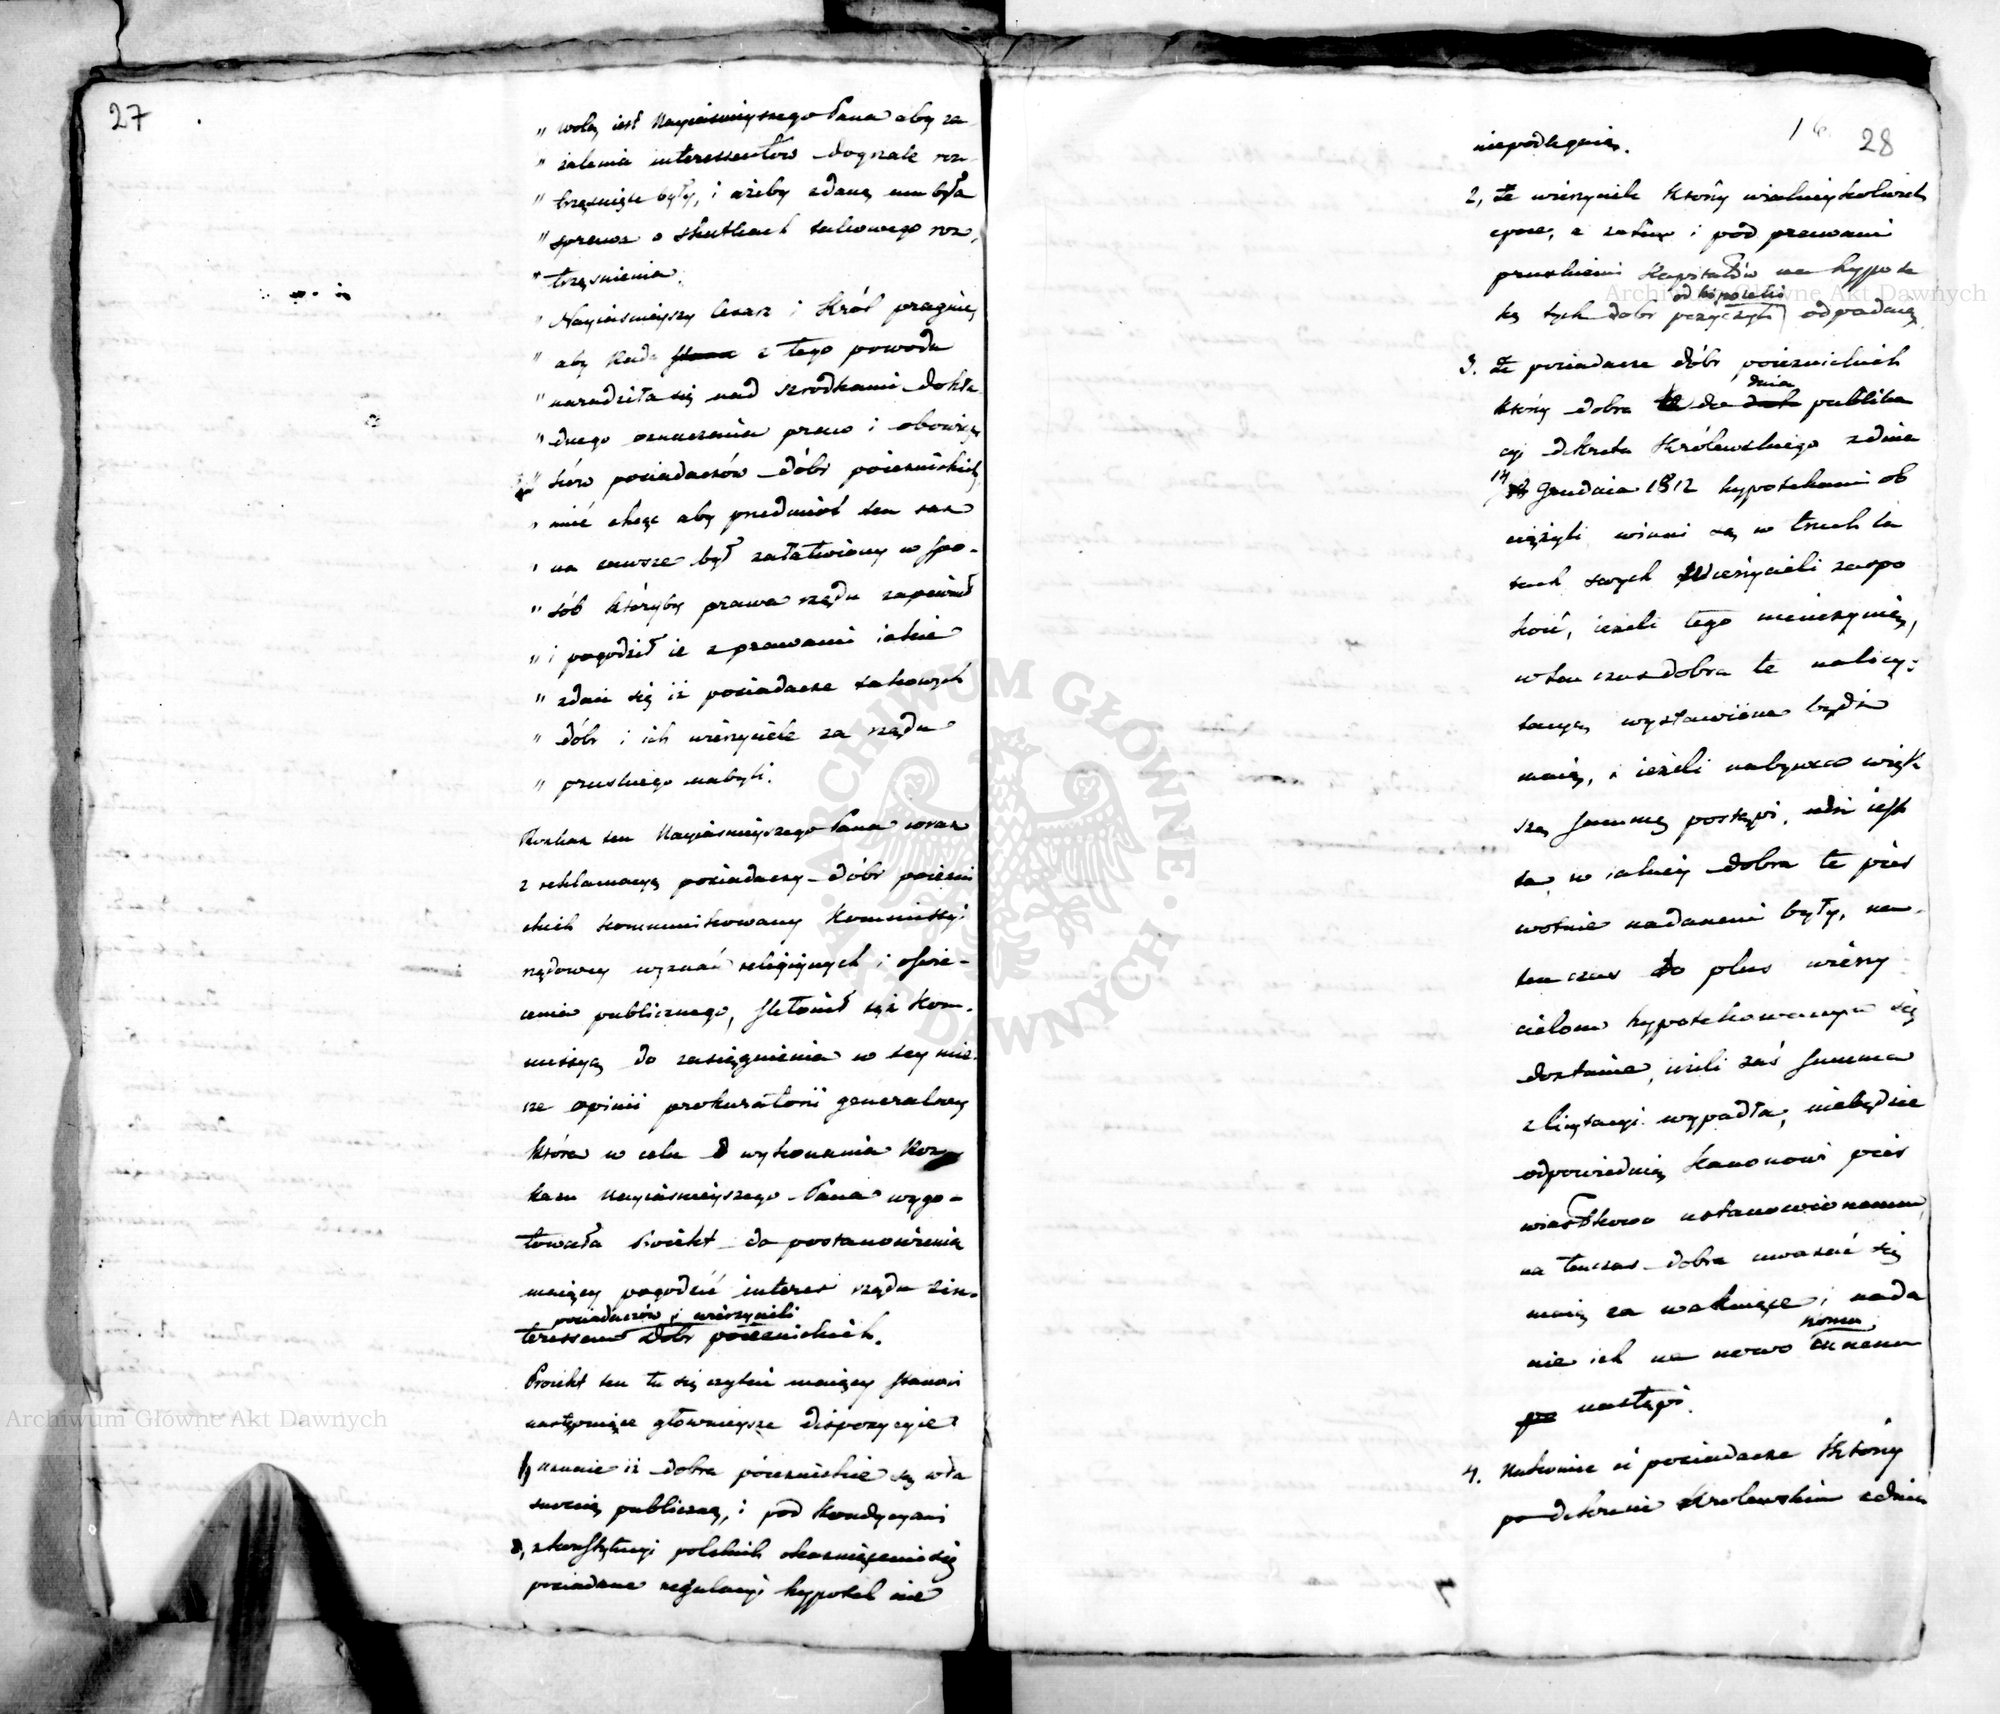 27
" wolą iest Nayiaśnieyszego Pana aby za-
" żalenia interessentów dogrzale roz-
" trząśnięte były, i ażeby zdaną mu była
" sprawa o skutkach takowego roz-
" trząśnienia.
" Nayiaśnieyszy Cesarz i Król pragnie
" aby Rada Stanu z tego powodu
" naradziła się nad szrodkami dokła
" dnego oznaczenia praw i obowiąz
" ków posiadaczów dóbr poiezuickich
" mieć chcąc aby przedmiot ten raz
" na zawsze był załatwiony w spo-
" sób któryby prawa rządu zapewnił
" i pogodził ie z prawami iakie
" zdaie się iż posiadacze takowych
" dóbr i ich wierzyciele za rządu
" pruskiego nabyli.
Rozkaz ten Nayiaśnieyszego Pana wraz
z reklamacyą posiadaczy dóbr poiezui
ckich kommunikowany Kommissyi
rządowey wyznań religiynych i oświe-
cenia publicznego, skłonił tęż Kom-
missyą do zasiągnienia w tey mie-
rze opinii prokuratorii generalney
która w celu wykonania Roz
kazu Nayiaśnieyszego Pana wygo-
towała Proiekt do postanowienia
maiący pogodzić interes rządu z in-
posiadaczów i wierzycieli
teressem dóbr poiezuickich.
Proiekt ten tu się czytać maiący stanowi
następuiące głównieysze dispozycye
1, uznaie iż dobra poiezuickie są wła
snością publiczną, i pod kondycyami
z konstytucyi polskich okazuiącemi się
posiadane regulacyi hypotek nie
16 28
niepodlegaią.
2, że wierzyciele którzy w iakieykolwiek
epoce, a zatem i pod prawami
pruskiemi kapitałów na hypote
od hipoteki
kę tych dobr pożyczyli odpadaią
3. że posiadacze dóbr poiezuickich
dnia
którzy dobra te do publika
cyi dekretu Królewskiego z dnia
14 Grudnia 1812 hypotekami ob
ciążyli winni są w trzech la
tach swych wierzycieli zaspo
koić, ieżeli tego nieuczynią,
w ten czas dobra te na licy-
tacyą wystawione bydź
maią, i ieżeli nabywca więk
szą summę postąpi, niż iest
ta w iakiey dobra te pier
wotnie nadanemi były, na-
ten czas to plus wierzy
cielom hypotekowanym się
dostanie, ieżeli zaś summa
z licytacyi wypadła, niebędzie
odpowiednią kanonowi pier
wiastkowo ustanowionemu,
na tenczas dobra uważać się
maią za wakuiące i nada
nie ich na nowo
komu
innemu
nastąpi.
4. Nakoniec ci posiadacze którzy
po dekrecie Królewskim z dnia
Archiwum Główne Akt Dawnych
Archiwum Główne Akt Dawnych
ARCHIWUM GŁÓWNE AKT DAWNYCH